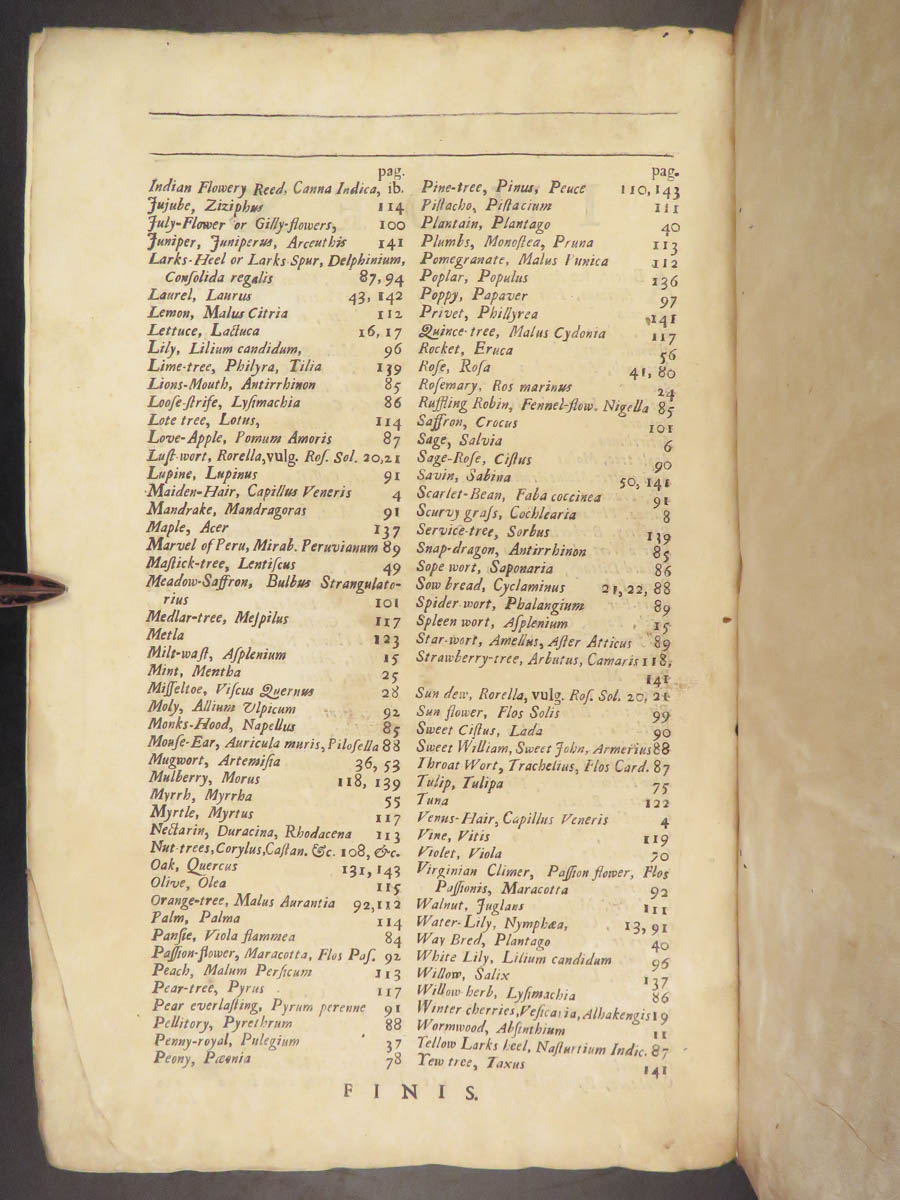 pag.
Indian Flowery Reed, Canna Indica, ib.
Jujube, Ziziphus 114
July-Flower or Gilly-flowers, 100
Juniper, Juniperus, Arceuthis 141
Larks-Heel or Larks Spur, Delphinium,
Conſolida regalis 87, 94
Laurel, Laurus 43, 142
Lemon, Malus Citria 112
Lettuce, Lactuca 16, 17
Lily, Lilium candidum, 96
Lime-tree, Philyra, Tilia 139
Lions-Mouth, Antirrhinon 85
Looſe-ſtrife, Lyſimachia 86
Lote tree, Lotus, 114
Love-Apple, Pomum Amoris 87
Luſt-wort, Rorella, vulg. Roſ. Sol. 20, 21
Lupine, Lupinus 91
Maiden-Hair, Capillus Veneris 4
Mandrake, Mandragoras 91
Maple, Acer 137
Marvel of Peru, Mirab. Peruvianum 89
Maſtick-tree, Lentiſcus 49
Meadow-Saffron, Bulbus Strangulato-
rius 101
Medlar-tree, Meſpilus 117
Metla 123
Milt-waſt, Aſplenium 15
Mint, Mentha 25
Miſſeltoe, Viſcus Quernus 28
Moly, Allium Vlpicum 92
Monks-Hood, Napellus 85
Mouſe-Ear, Auricula muris, Piloſella 88
Mugwort, Artemiſia 36, 53
Mulberry, Morus 118, 139
Myrrh, Myrrha 55
Myrtle, Myrtus 117
Nectarin, Duracina, Rhodacena 113
Nut-trees, Corylus, Caſtan. &c. 108, &c.
Oak, Quercus 131, 143
Olive, Olea 115
Orange-tree, Malus Aurantia 92, 112
Palm, Palma 114
Panſie, Viola flammea 84
Paſſion-flower, Maracotta, Flos Paſ. 92
Peach, Malum Perſicum 113
Pear-tree, Pyrus 117
Pear everlaſting, Pyrum perenne 91
Pellitory, Pyrethrum 88
Penny-royal, Pulegium 37
Peony, Pæonia 78
pag.
Pine-tree, Pinus, Peuce 110, 143
Piſtacho, Piſtacium 111
Plantain, Plantago 40
Plumbs, Monoſtea, Pruna 113
Pomegranate, Malus Punica 112
Poplar, Populus 136
Poppy, Papaver 97
Privet, Phillyrea 141
Quince-tree, Malus Cydonia 117
Rocket, Eruca 56
Roſe, Roſa 41, 80
Roſemary, Ros marinus 24
Ruffling Robin, Fennel-flow. Nigella 85
Saffron, Crocus 101
Sage, Salvia 6
Sage-Roſe, Ciſtus 90
Savin, Sabina 50, 141
Scarlet-Bean, Faba coccinea 91
Scurvy graſs, Cochlearia 8
Service-tree, Sorbus 139
Snap-dragon, Antirrhinon 85
Sope wort, Saponaria 86
Sow bread, Cyclaminus 21, 22, 88
Spider wort, Phalangium 89
Spleen wort, Aſplenium 15
Star-wort, Amellus, Aſter Atticus 89
Strawberry-tree, Arbutus, Camaris 118,
141
Sun dew, Rorella, vulg. Roſ. Sol. 20, 21
Sun flower, Flos Solis 99
Sweet Ciſtus, Lada 90
Sweet William, Sweet John, Armerius 88
Throat Wort, Trachelius, Flos Card. 87
Tulip, Tulipa 75
Tuna 122
Venus-Hair, Capillus Veneris 4
Vine, Vitis 119
Violet, Viola 70
Virginian Climer, Paſſion flower, Flos
Paſſionis, Maracotta 92
Walnut, Juglans 111
Water-Lily, Nymphæa, 13, 91
Way Bred, Plantago 40
White Lily, Lilium candidum 96
Willow, Salix 137
Willow herb, Lyſimachia 86
Winter cherries, Veſicaria, Alhakengis 19
Wormwood, Abſinthium 11
Yellow Larks heel, Naſturtium Indic. 87
Yew tree, Taxus 141
FINIS.